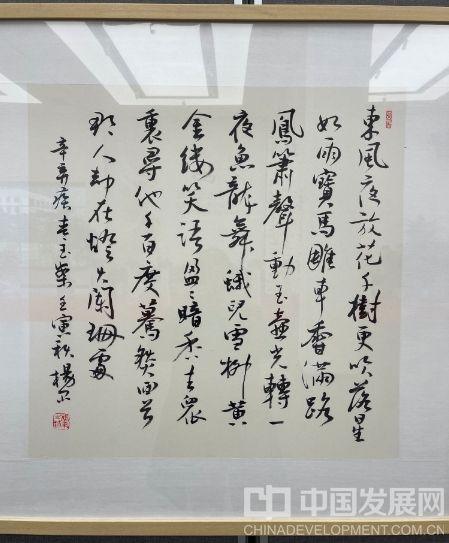 東風夜放花千樹更吹落星
如雨寶馬雕車香滿路
鳳簫聲動玉壺光轉一
夜魚龍舞蛾兒雪柳黃
金縷笑語盈〻暗香去眾
裏尋他千百度驀然回首
那人却在燈火闌珊處
辛弃疾青玉案壬寅秋楊
中国发展网
CHINADEVELOPMENT.COM.CN